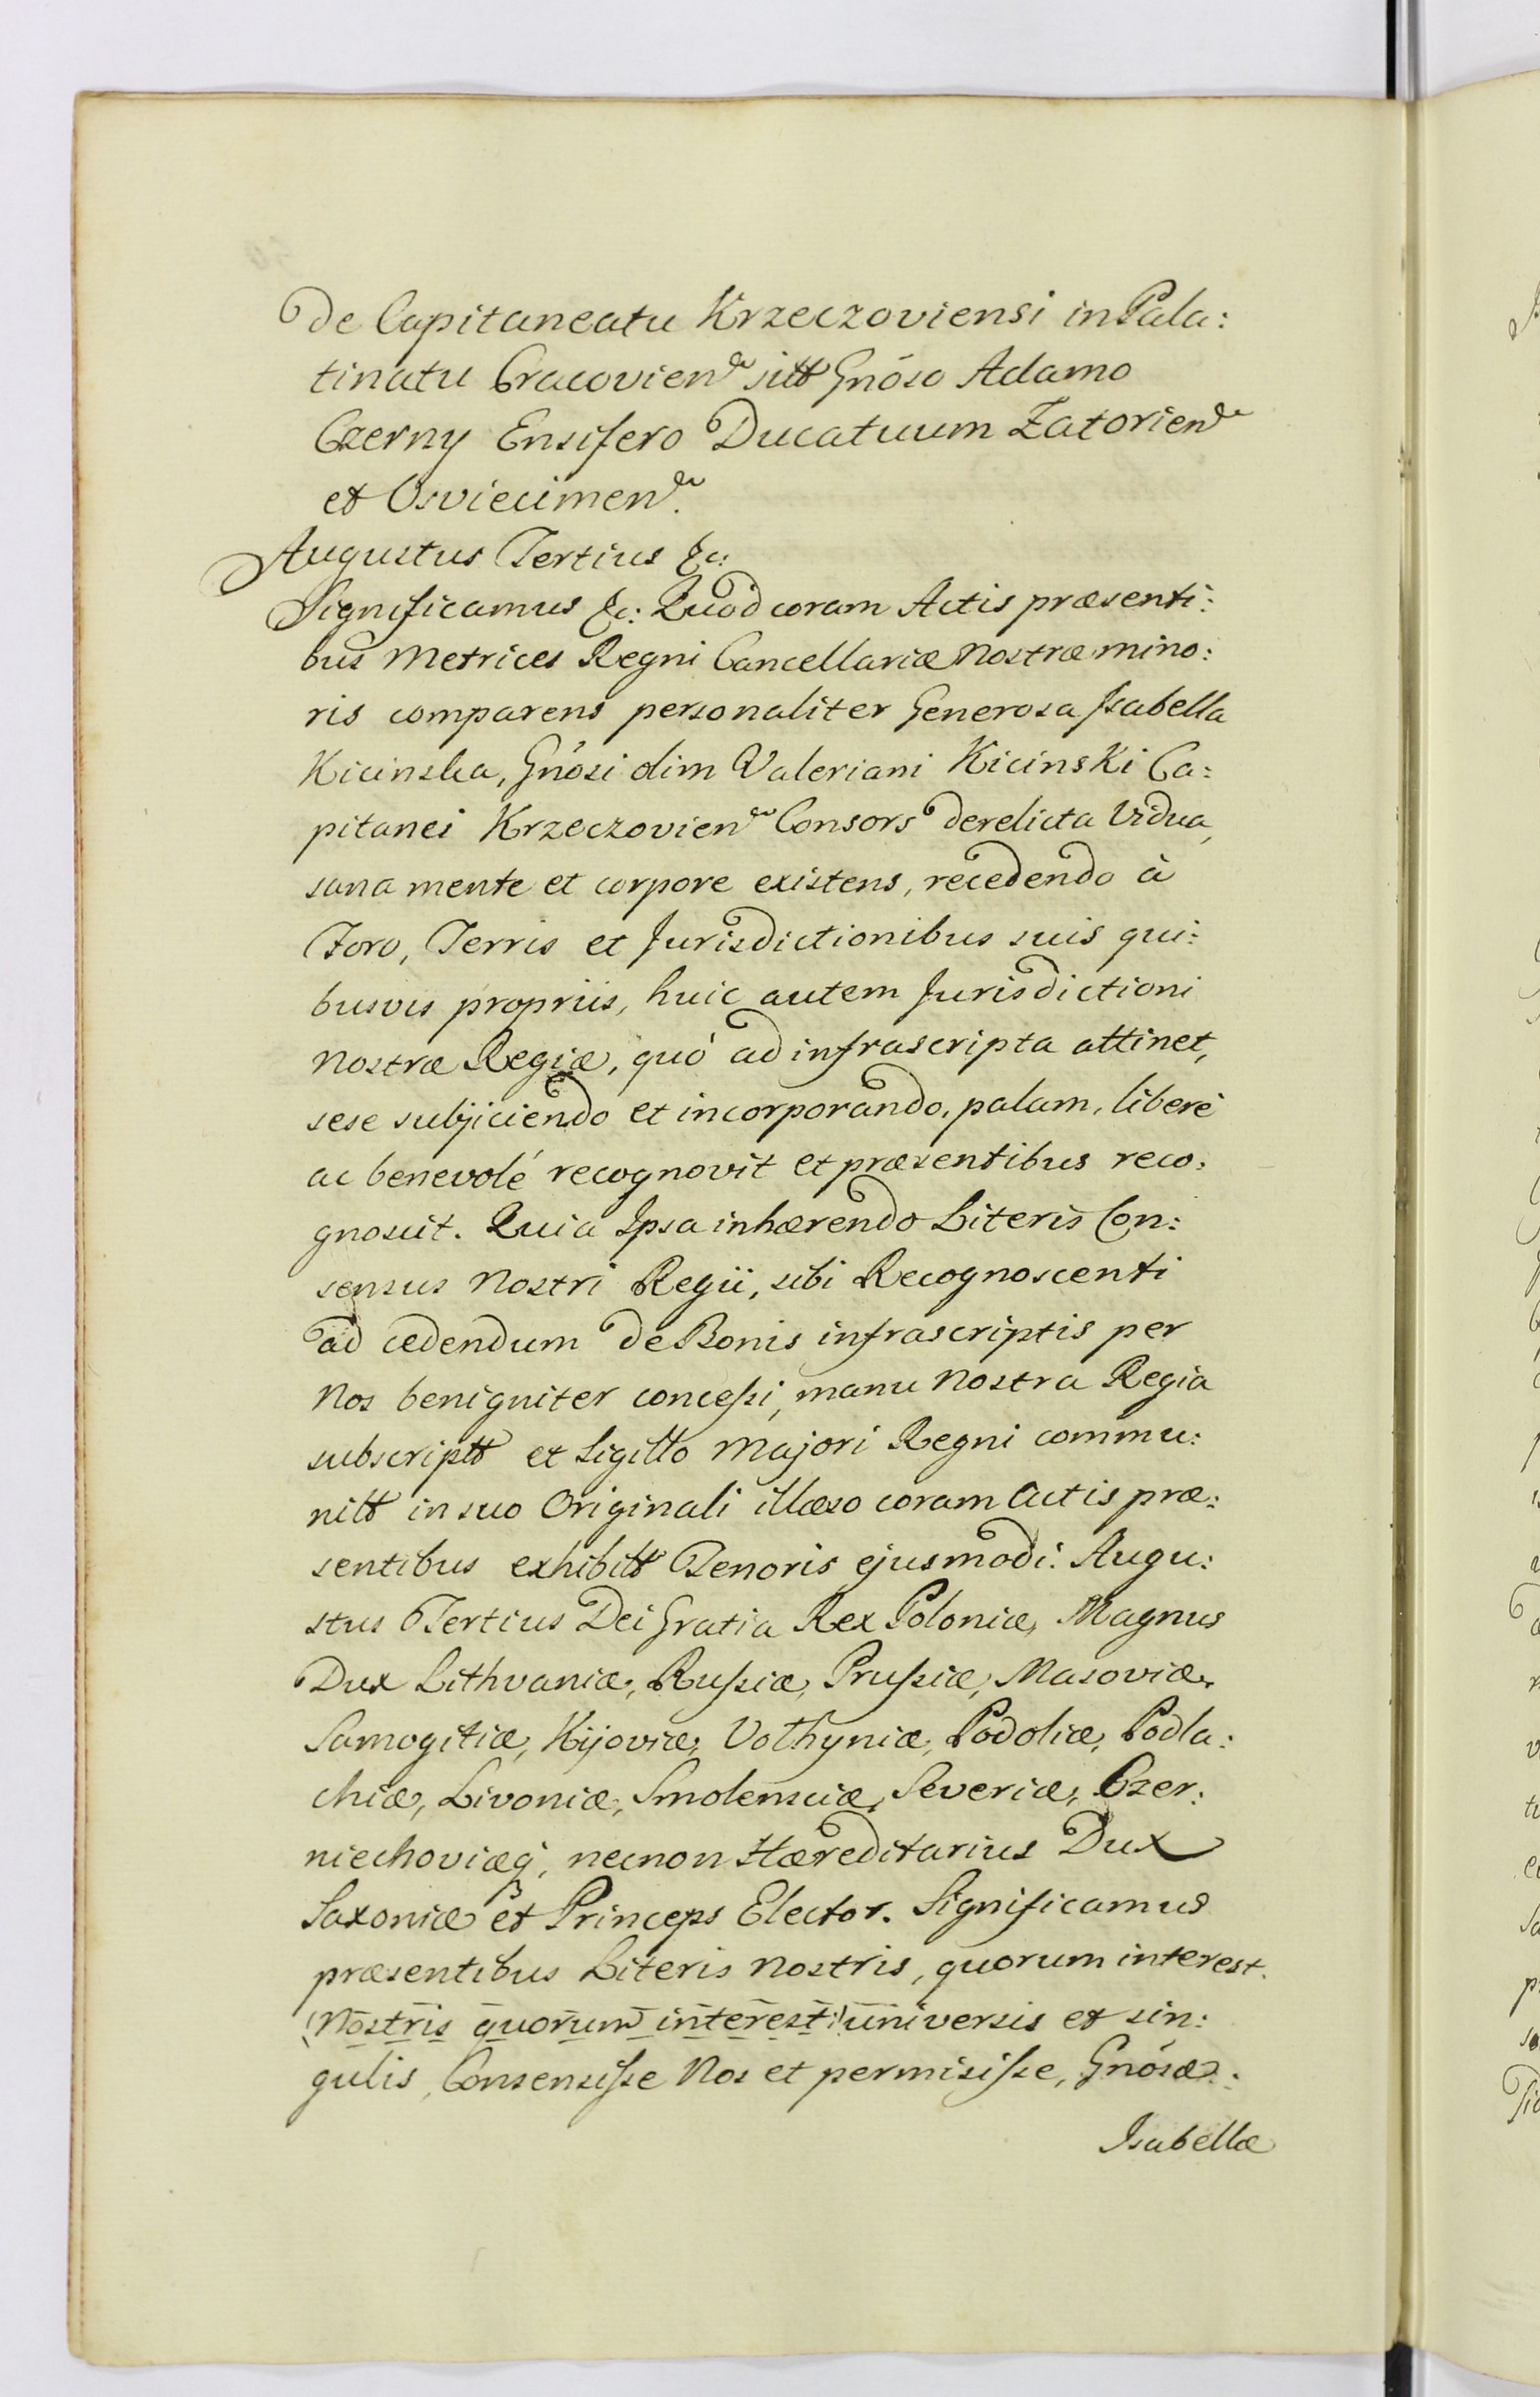 De Capitaneatu Krzeczoviensi in Pala:
tinatu Cracovien sitt Gnóso Adamo
Czerny Ensifero Ducatuum Zatorien
et Osviecimen.
Augustus Tertius &c:
Significamus &c: Quod coram Actis præsenti:
bus Metrices Regni Cancellariæ Nostræ mino:
ris comparens personaliter Generosa Isabella
Kicinska, Gnósi olim Valeriani Kicinski Ca:
pitanei Krzeczovien Consors derelicta Vidua,
sana mente et corpore existens, recedendo à
Foro, Terris et Jurisdictionibus suis qui:
busvis propriis, huic autem Jurisdictioni
Nostræ Regiæ, quó ad infrascripta attinet,
sese subjiciendo et incorporando, palam, liberè
ac benevolé recognovit et præsentibus reco:
gnoscit. Quia Ipsa inhærendo Literis Con:
sensus Nostri Regii, sibi Recognoscenti
ad cedendum de Bonis infrascriptis per
Nos benigniter concessi, manu Nostra Regia
subscriptt et Sigillo Majori Regni commu:
nitt in suo Originali illæso coram Actis præ:
sentibus exhibitt Tenoris ejusmodi: Augu:
stus Tertius Dei Gratia Rex Poloniæ, Magnus
Dux Lithvaniæ, Russiæ, Prussiæ, Masoviæ,
Samogitiæ, Kijoviæ, Volhyniæ, Podoliæ, Podla:
chiæ, Livoniæ, Smolensciæ, Severiæ, Czer:
niechoviæq, necnon Hæreditarius Dux
Saxoniæ et Princeps Elector. Significamus
præsentibus Literis Nostris, quorum interest.
(Nostris quorum interest:) universis et sin:
gulis, Consensisse Nos et permisisse, Gnósæ:
Isabellæ